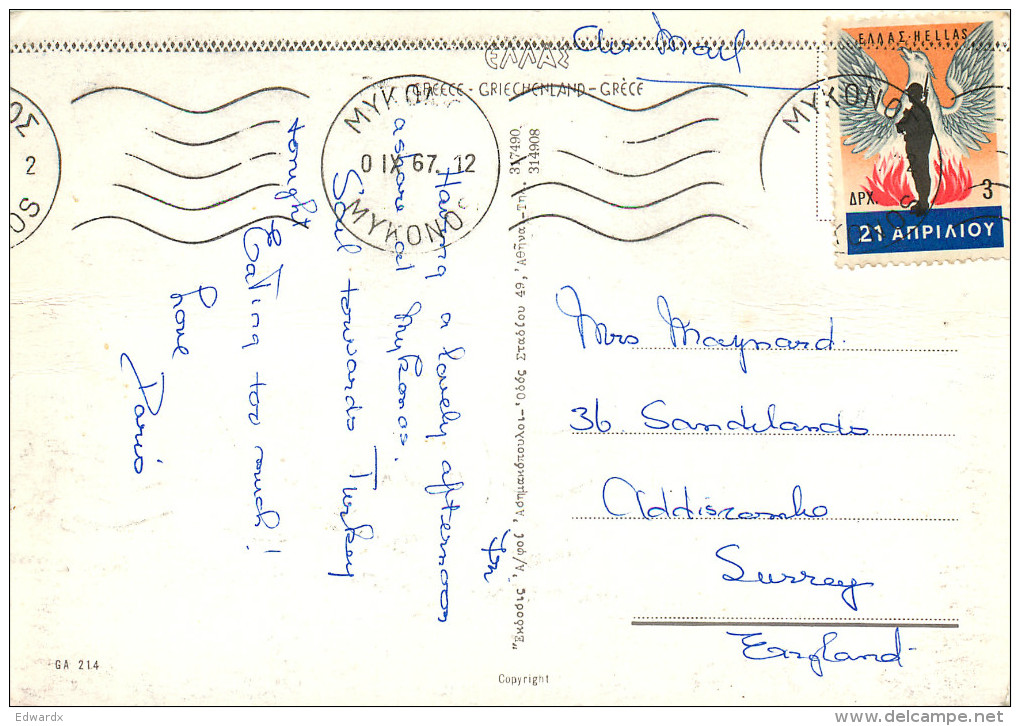 Air Mail
ΕΛΛΑΣ
GREECE - GRIECHENLAND - GRÈCE
ΕΛΛΑΣ-HELLAS
ΔΡΧ. 3
21 ΑΠΡΙΛΙΟΥ
ΜΥΚΟΝΟΣ
0 IX 67. 12
MYKONO
ΜΥΚΟΝΟ
2
Fri
Having a lovely afternoon
ashore at Mykonos.
Sail towards Turkey
tonight
Eating too much!
love
"Εκδοσις 'Α/φοί 'Ασημακόπουλοι-'Οδός Σταδίου 49, 'Αθήναι-Τηλ. 317490. 314908
Mrs Maynard.
36 Sandilands
Addiscombe
Surrey
England
GA 21.4
Copyright
Edwardx
www.delcampe.net